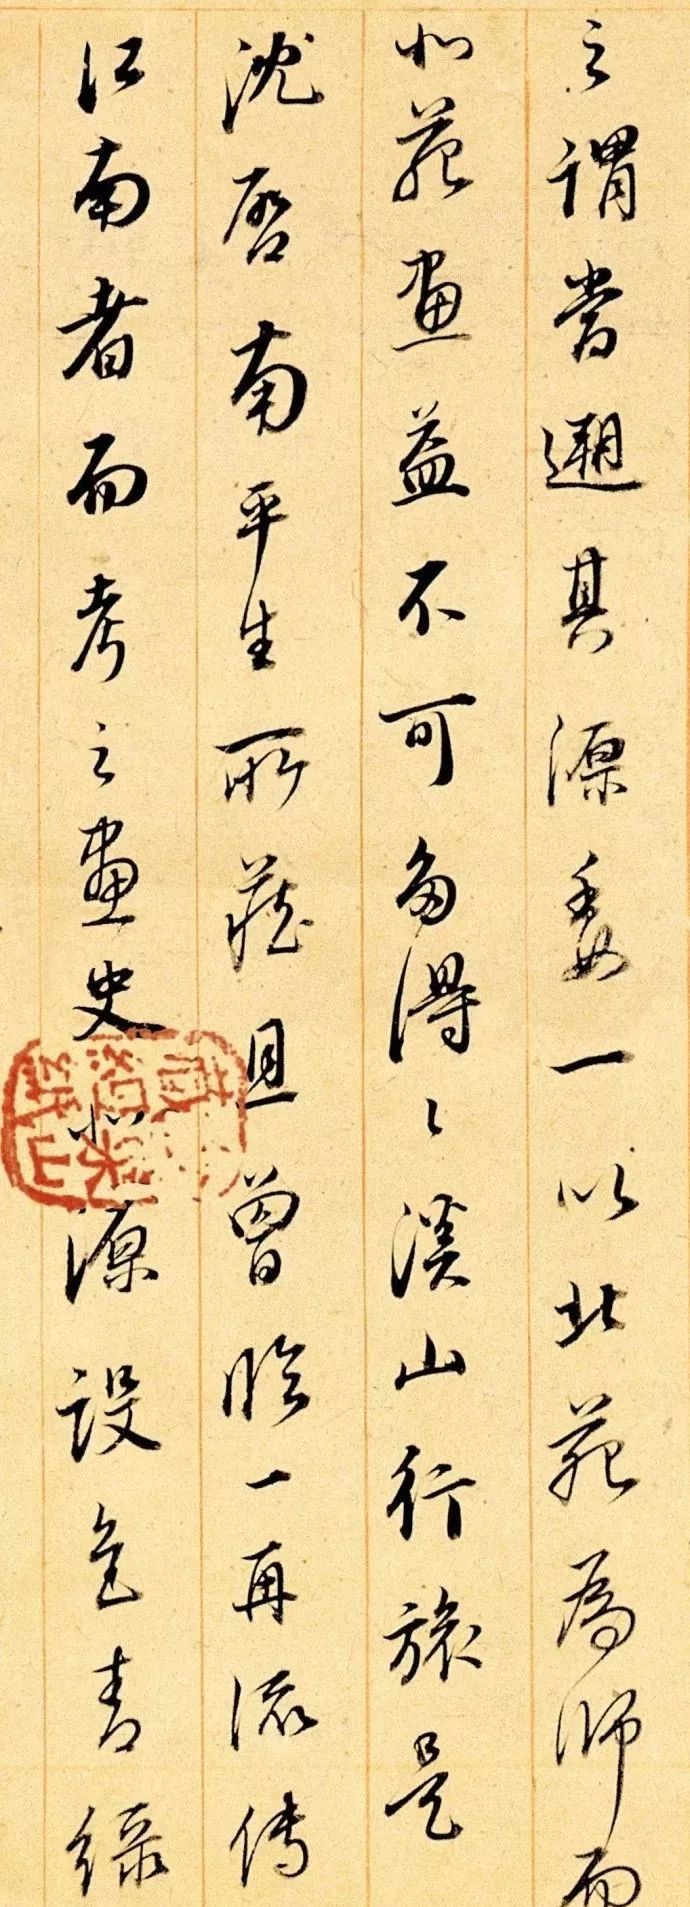 之謂嘗遡其源委一以北苑為師而
北苑畫益不可多得得溪山行旅是
沈啓南平生所藏且曾臨一再流傳
江南者而考之畫史北源設色青綠